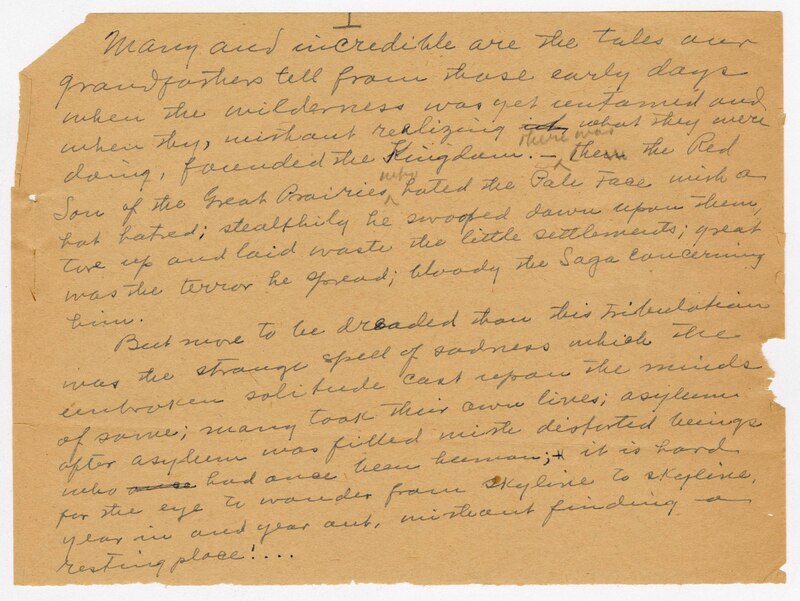 I
Many and incredible are the tales our
grandfathers tell from those early days
when the wilderness was yet untamed and
when thy, without realizing it what they were
doing, founded the Kingdom. – there was then the Red
Son of the Great Prairies who hated the Pale Face with a
hot hatred; stealthily he swooped down upon them,
tore up and laid waste the little settlements; great
was the terror he spread; bloody the Saga concerning
him.
But more to be dreaded than this tribulation
was the strange spell of sadness which the
unbroken solitude cast upon the minds
of some; many took their own lives; asylum
after asylum was filled with distorted beings
who once had once been human; it is hard
for the eye to wander from skyline to skyline,
year in and year out, without finding a
resting place!...